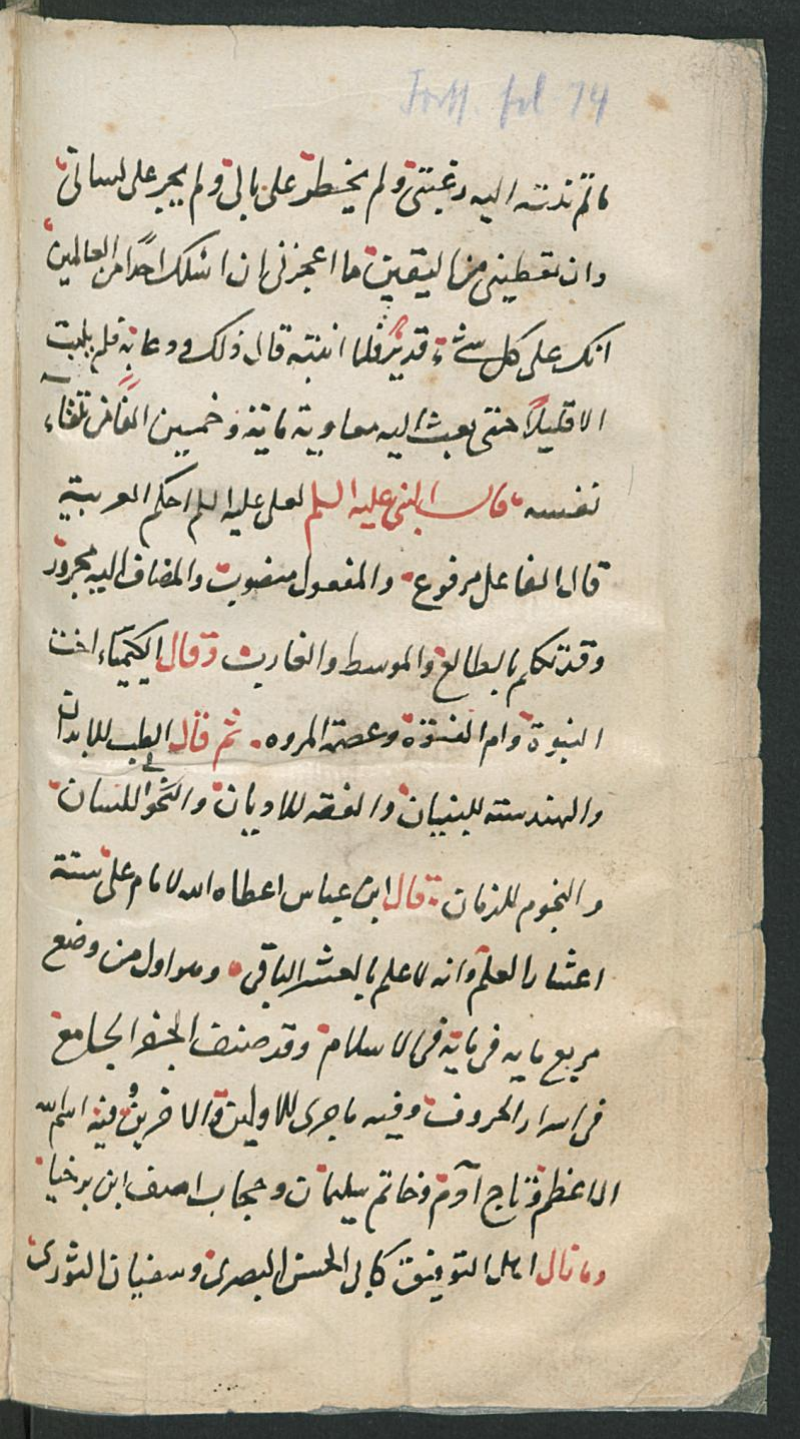 Forts. fol. 74
ما لم تنته اليه رغبتى ولم يخطر على بالى ولم يجر على لسانى
وان تعطينى من اليقين ما اعجزنى ان اسئلك احدًا من العالمين
انك على كل شئ قدير فلما انتبه قال ذلك ودعا به فلم يلبث
الا قليلاً حتى بعث اليه معاوية ماية وخمسين الفًا من تلقاء
نفسه قال النبى عليه السلم لعلى عليه السلم احكم العربية
قال الفاعل مرفوع والمفعول منصوب والمضاف اليه مجرور
وقد تكلم بالطالع والموسط والغارب وقال الكيمياء اخت
النبوة وام الفتوة وعصمة المروه ثم قال الطب للابدان
والهندسة للبنيان والفقه للاديان والنحو للسان
والنجوم للزمان قال ابن عباس اعطاه الله لامام على ستة
اعشار العلم وانه لاعلم بالعشر الباقى وهو اول من وضع
مربع مايه فى مايه فى الاسلام وقد صنف الجفر الجامع
فى اسرار الحروف وفيه ما جرى للاولين والاخرين وفيه اسم الله
الاعظم وتاج آدم وخاتم سليمان وحجاب اصف ابن برخيا
وما نال اهل التوفيق كالحسن البصرى وسفيان الثورى